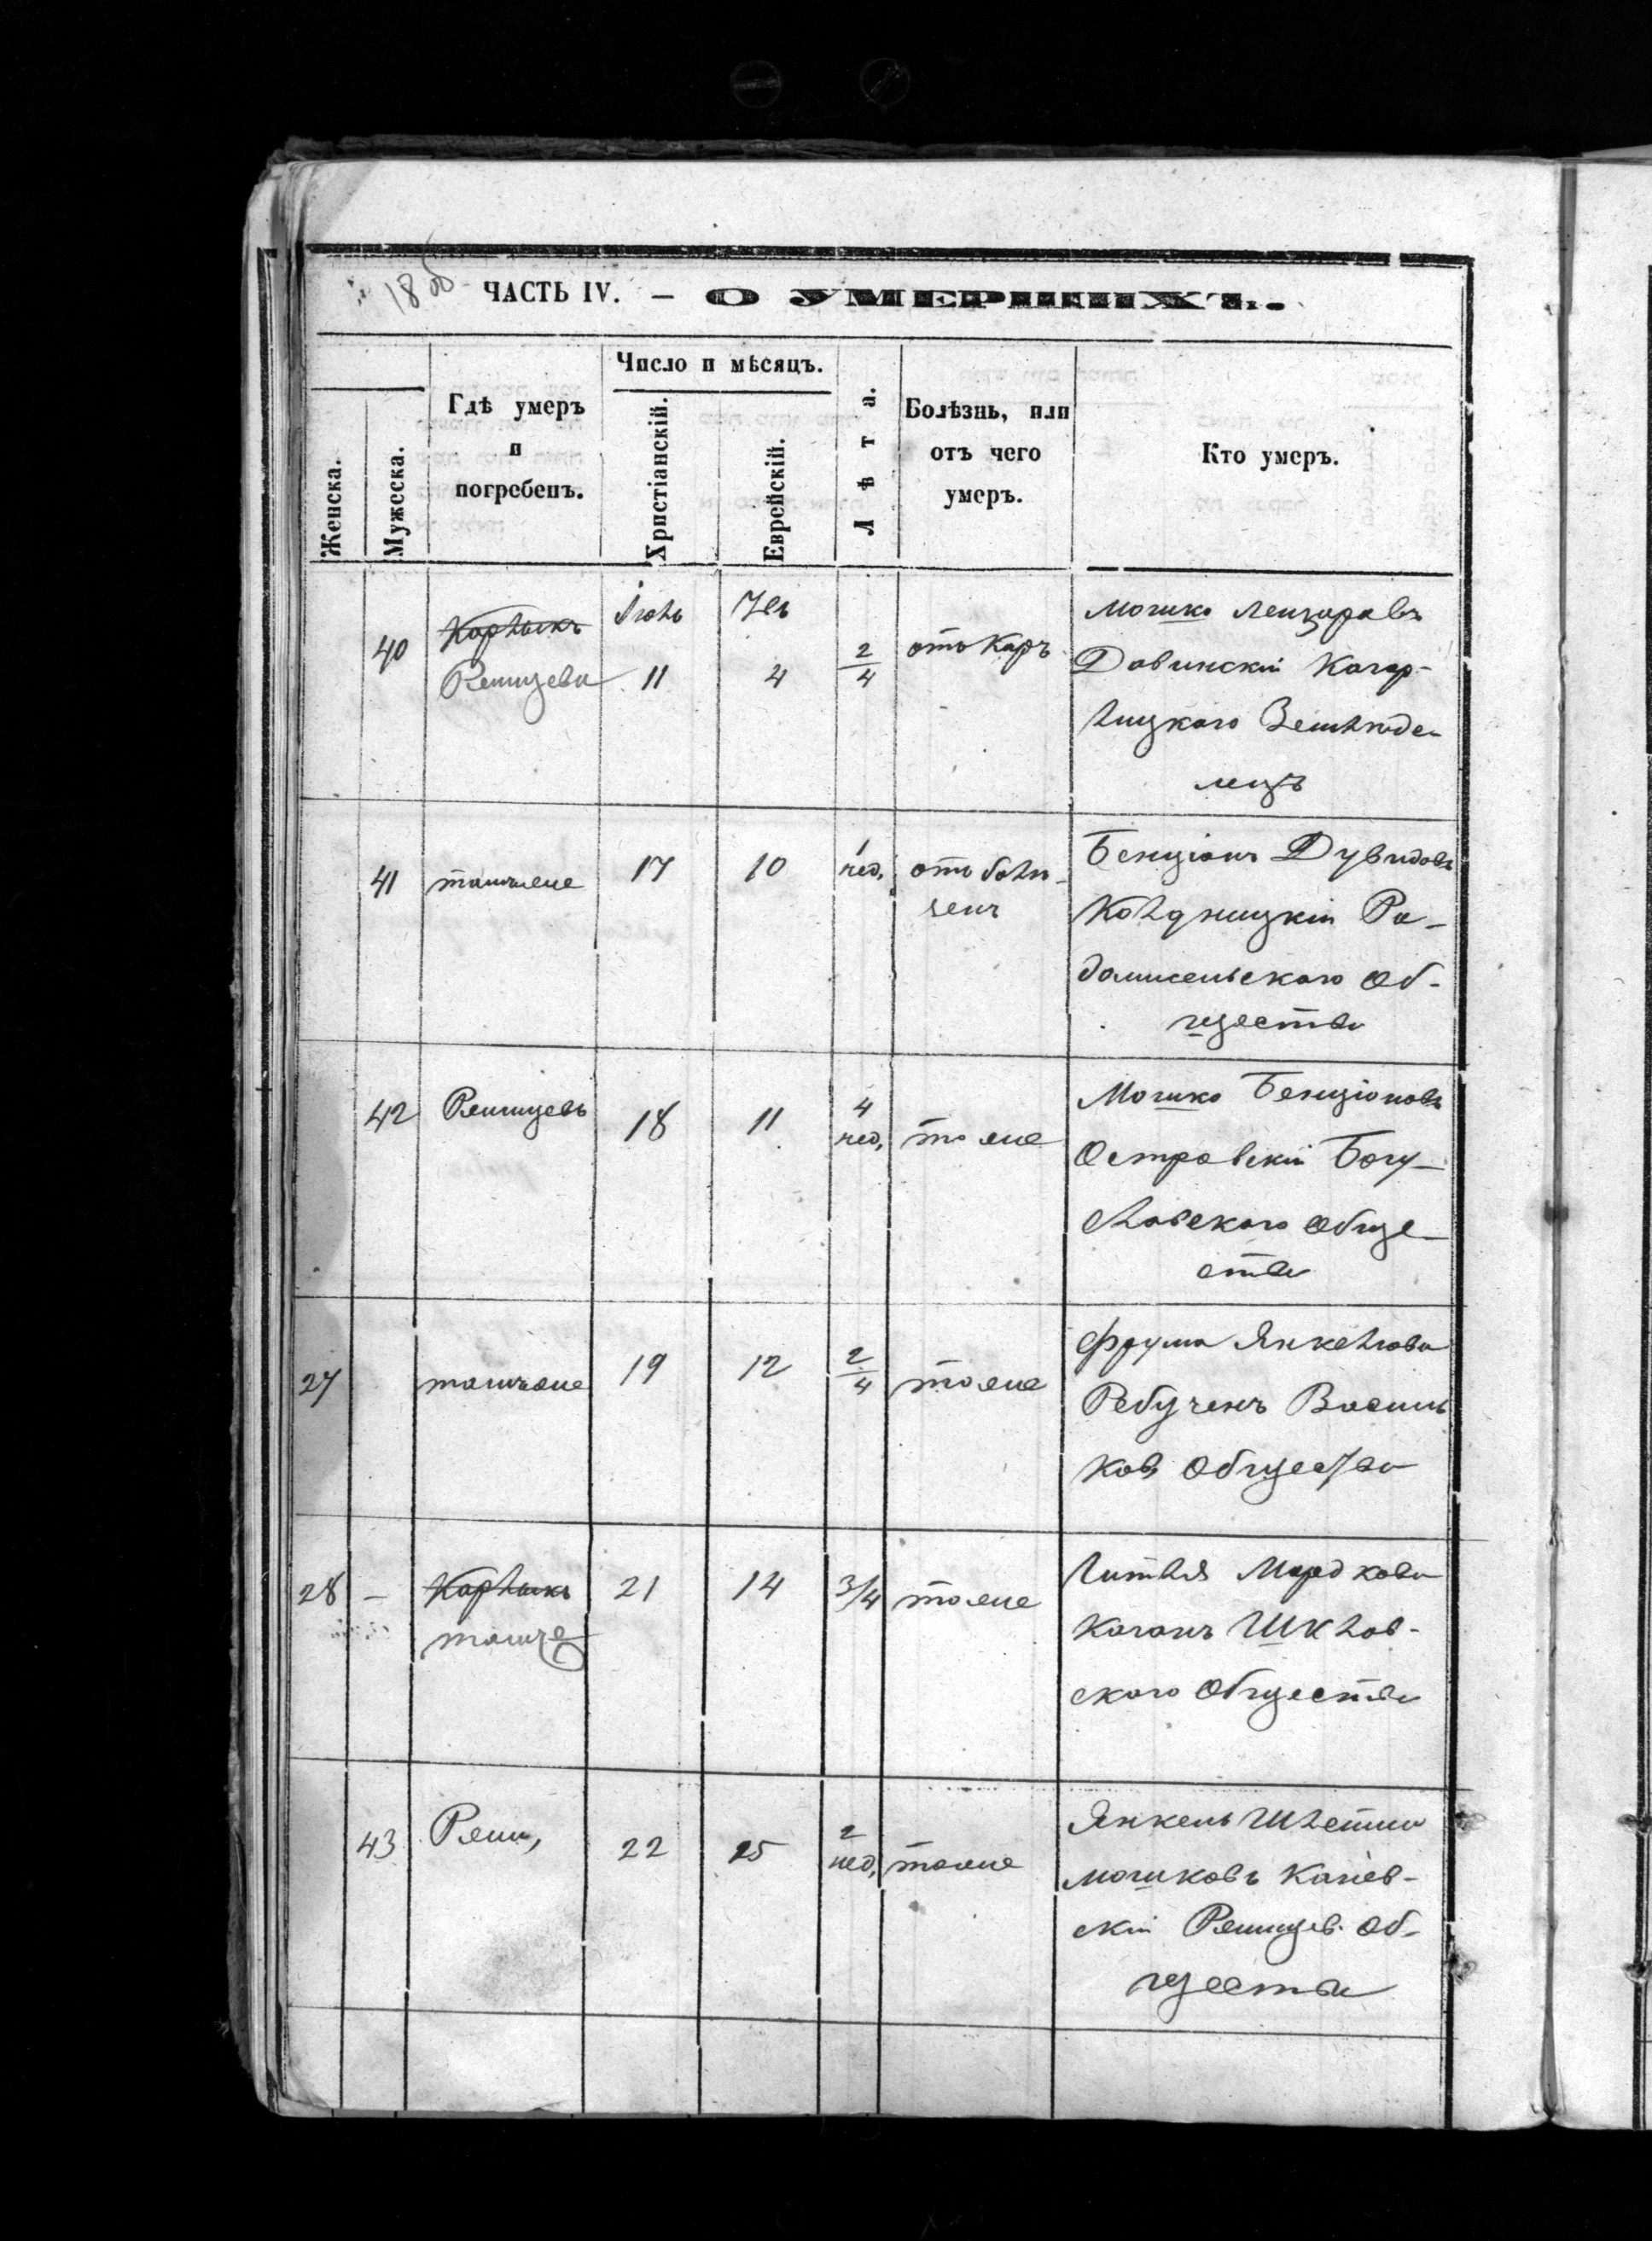 18 об
ЧАСТЬ IV. — О УМЕРШИХЪ.
Женска.
Мужеска.
Гдѣ умеръ
и
погребенъ.
Число и мѣсяцъ.
Христіанскій.
Еврейскій.
Лѣта.
Болѣзнь, или
отъ чего
умеръ.
Кто умеръ.
40
Ржищевѣ
Іюль
11
4
2/4
отъ Коръ
Мошко Лейзоровъ
Довинскій Кагар-
лицкаго Земледе-
лецъ
41
тамже
17
10
1
нед.
Бенціонъ Дувидовъ
Колдницкій Ра-
домисельскаго Об-
щества
42
Ржищевъ
18
11
4
нед.
тоже
Мошко Бенціоновъ
Островскій Богу-
славскаго Обще-
ства
27
тамже
19
12
2/4
тоже
Фрума Янкелова
Ребученъ Василь
ков Общества
28
—
тамже
21
14
3/4
тоже
Мордкова
Коганъ Шклов-
скаго Общества
43
Ржищ,
22
25
2
нед,
тоже
Янкель Шлема
Мошковъ Каніев-
скій Ржищев. Об-
щества